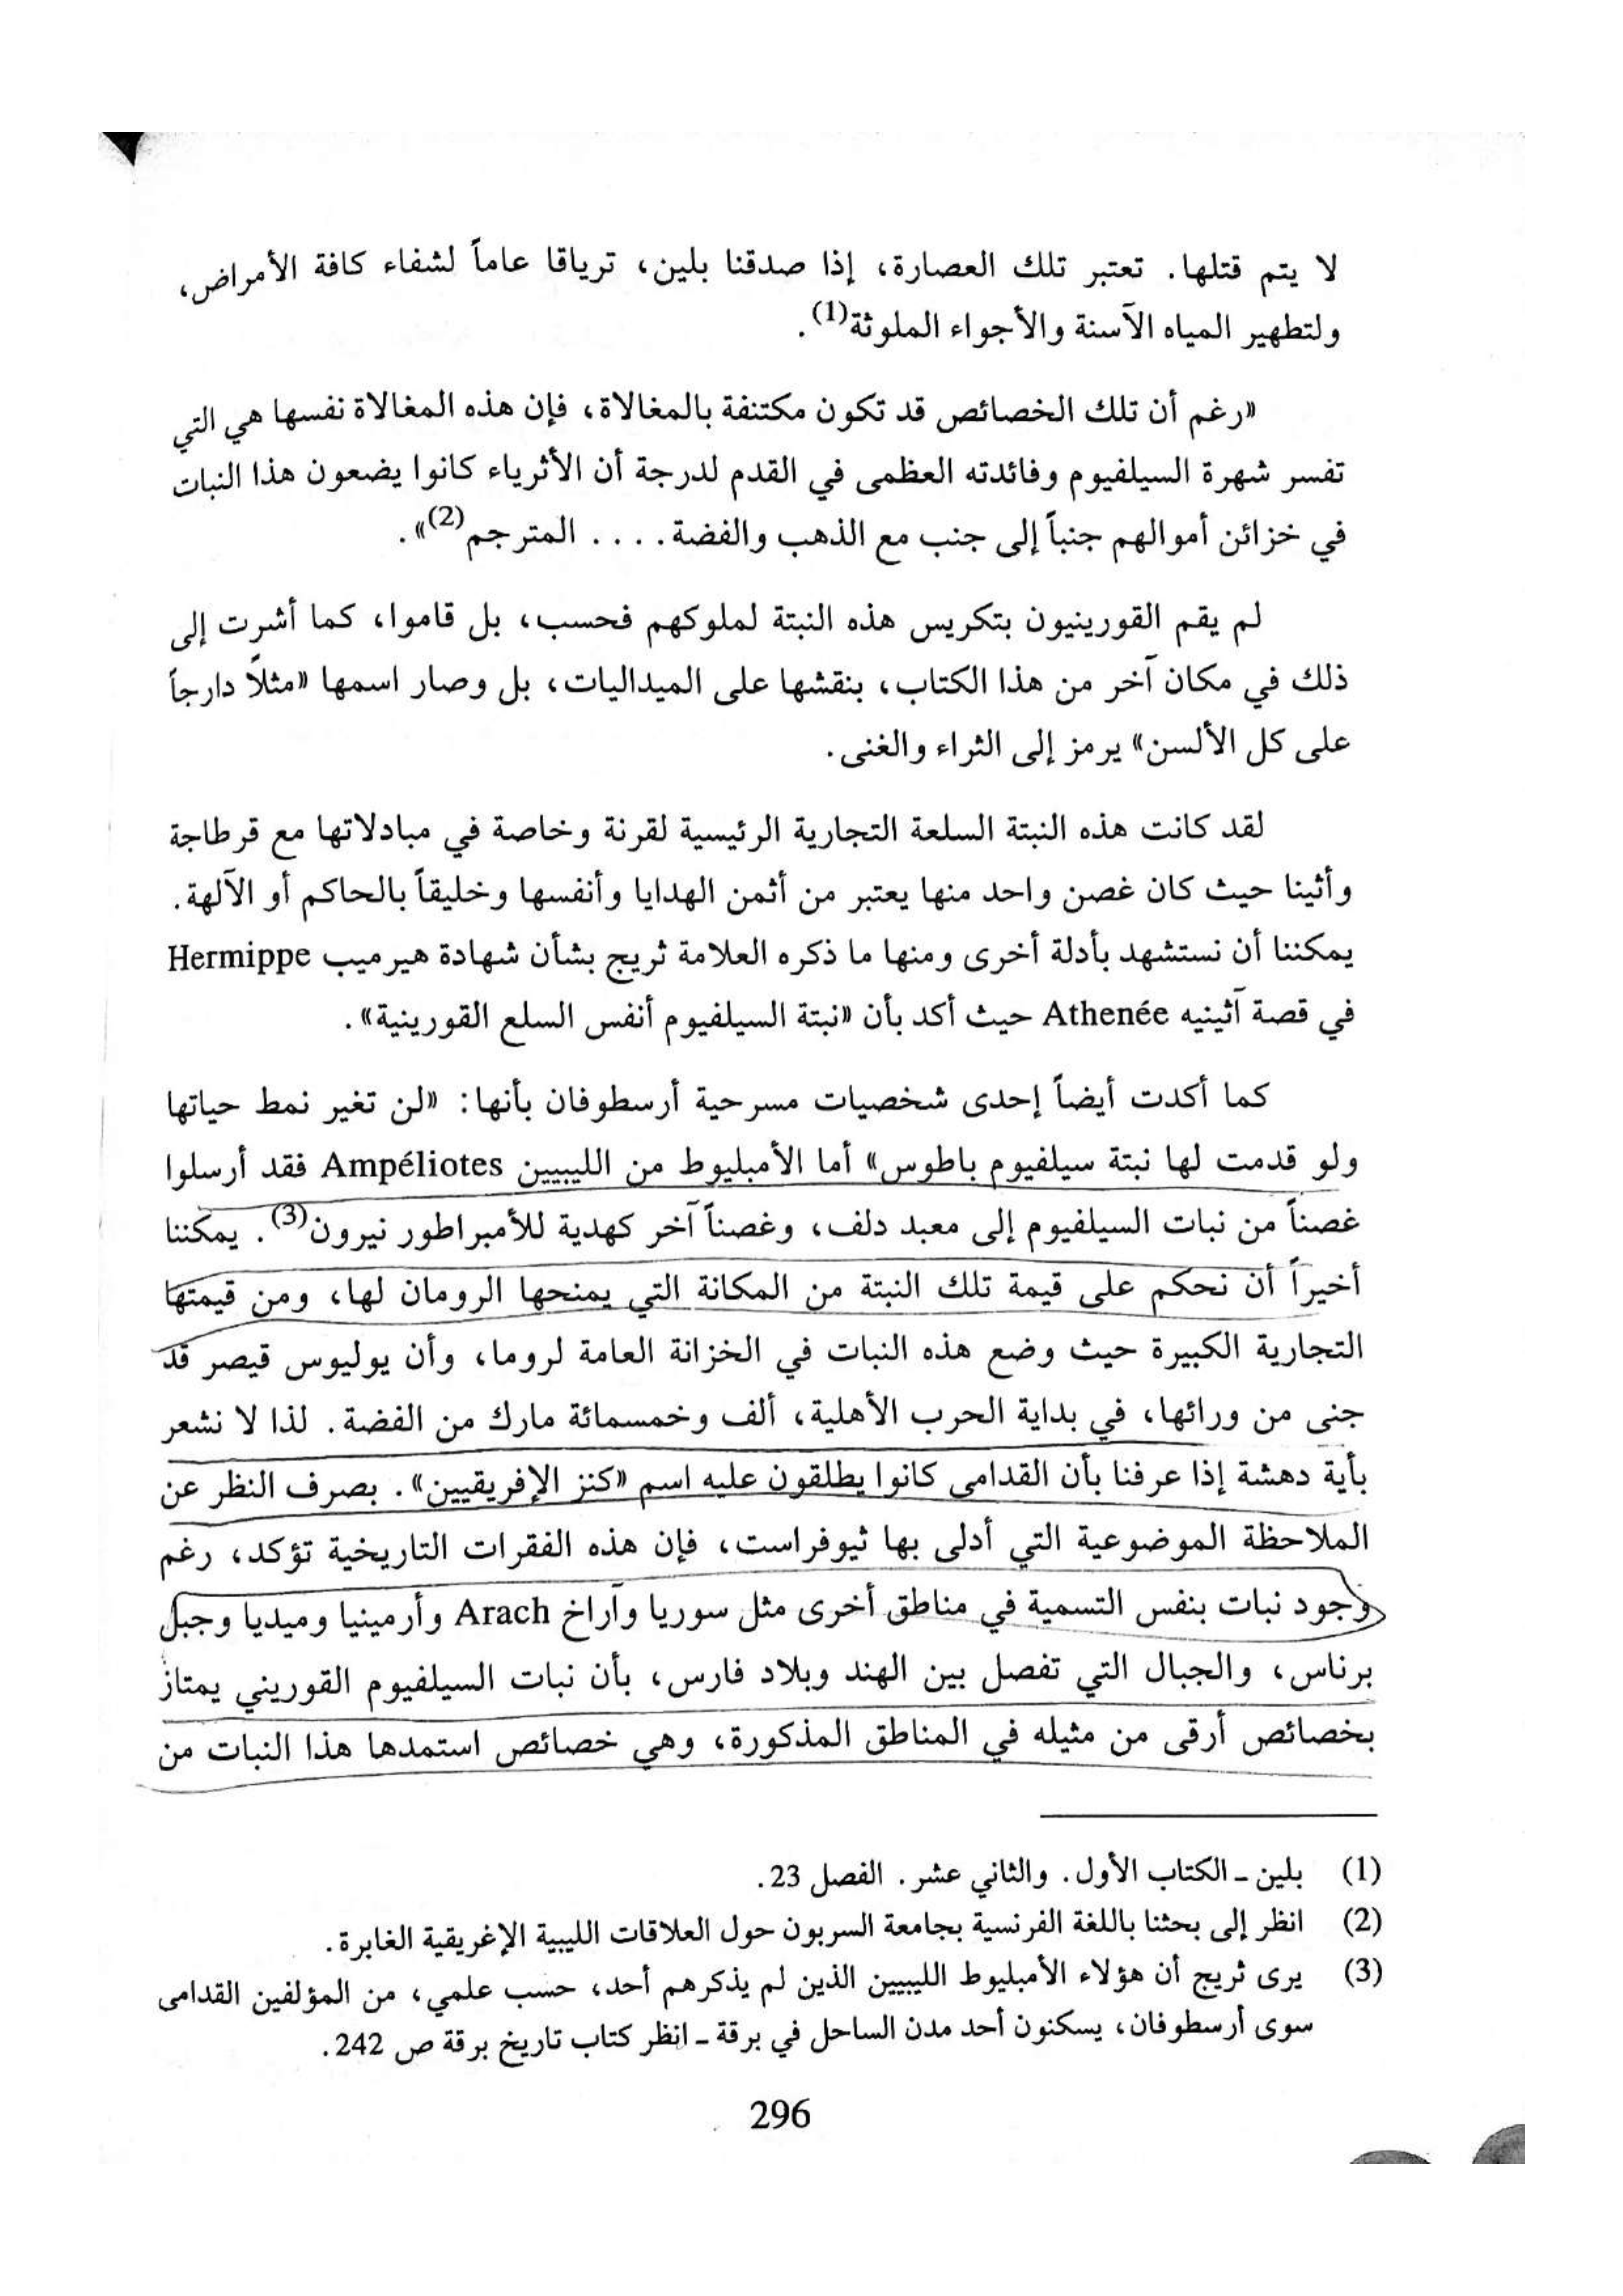 لا يتم قتلها. تعتبر تلك العصارة، إذا صدقنا بلين، ترياقا عاماً لشفاء كافة الأمراض،
ولتطهير المياه الآسنة والأجواء الملوثة(1).
«رغم أن تلك الخصائص قد تكون مكتنفة بالمغالاة، فإن هذه المغالاة نفسها هي التي
تفسر شهرة السيلفيوم وفائدته العظمى في القدم لدرجة أن الأثرياء كانوا يضعون هذا النبات
في خزائن أموالهم جنباً إلى جنب مع الذهب والفضة.... المترجم(2)».
لم يقم القورينيون بتكريس هذه النبتة لملوكهم فحسب، بل قاموا، كما أشرت إلى
ذلك في مكان آخر من هذا الكتاب، بنقشها على الميداليات، بل وصار اسمها «مثلاً دارجاً
على كل الألسن» يرمز إلى الثراء والغنى.
لقد كانت هذه النبتة السلعة التجارية الرئيسية لقرنة وخاصة في مبادلاتها مع قرطاجة
وأثينا حيث كان غصن واحد منها يعتبر من أثمن الهدايا وأنفسها وخليقاً بالحاكم أو الآلهة.
يمكننا أن نستشهد بأدلة أخرى ومنها ما ذكره العلامة ثريج بشأن شهادة هيرميب Hermippe
في قصة آثينيه Athenée حيث أكد بأن «نبتة السيلفيوم أنفس السلع القورينية».
كما أكدت أيضاً إحدى شخصيات مسرحية أرسطوفان بأنها: «لن تغير نمط حياتها
ولو قدمت لها نبتة سيلفيوم باطوس» أما الأمبليوط من الليبيين Ampéliotes فقد أرسلوا
غصناً من نبات السيلفيوم إلى معبد دلف، وغصناً آخر كهدية للأمبراطور نيرون(3). يمكننا
أخيراً أن نحكم على قيمة تلك النبتة من المكانة التي يمنحها الرومان لها، ومن قيمتها
التجارية الكبيرة حيث وضع هذه النبات في الخزانة العامة لروما، وأن يوليوس قيصر قد
جنى من ورائها، في بداية الحرب الأهلية، ألف وخمسمائة مارك من الفضة. لذا لا نشعر
بأية دهشة إذا عرفنا بأن القدامى كانوا يطلقون عليه اسم «كنز الإفريقيين». بصرف النظر عن
الملاحظة الموضوعية التي أدلى بها ثيوفراست، فإن هذه الفقرات التاريخية تؤكد، رغم
وجود نبات بنفس التسمية في مناطق أخرى مثل سوريا وآراخ Arach وأرمينيا وميديا وجبل
برناس، والجبال التي تفصل بين الهند وبلاد فارس، بأن نبات السيلفيوم القوريني يمتاز
بخصائص أرقى من مثيله في المناطق المذكورة، وهي خصائص استمدها هذا النبات من
(1) بلين - الكتاب الأول. والثاني عشر. الفصل 23.
(2) انظر إلى بحثنا باللغة الفرنسية بجامعة السربون حول العلاقات الليبية الإغريقية الغابرة.
(3) يرى ثريج أن هؤلاء الأمبليوط الليبيين الذين لم يذكرهم أحد، حسب علمي، من المؤلفين القدامى
سوى أرسطوفان، يسكنون أحد مدن الساحل في برقة - انظر كتاب تاريخ برقة ص 242.
296